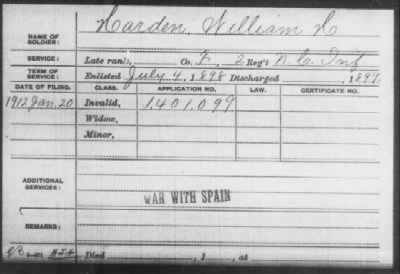 NAME OF SOLDIER: Harden, William H
SERVICE: Late rank, Co. F, 2 Reg't N.C. Inf
TERM OF SERVICE: Enlisted July 4, 1898 Discharged , 1899
DATE OF FILING. CLASS. APPLICATION NO. LAW. CERTIFICATE NO.
1912 Jan. 20 Invalid, 1401099
Widow,
Minor,
ADDITIONAL SERVICES:
WAR WITH SPAIN
REMARKS:
Died , 1 , at